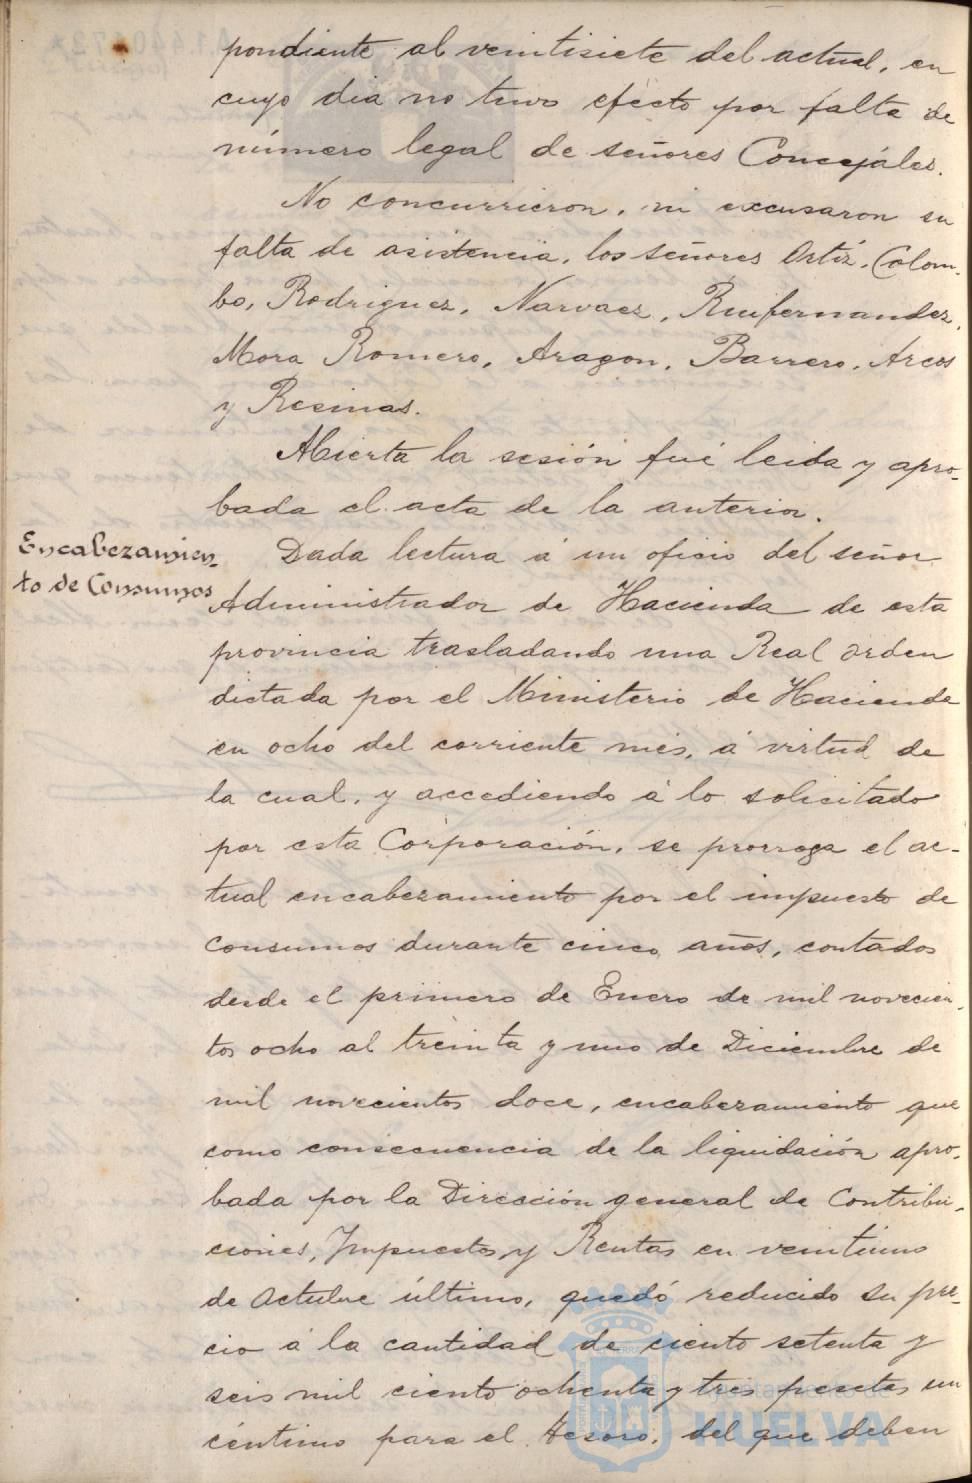 pondiente al veintisiete del actual, en
cuyo dia no tuvo efecto por falta de
número legal de señores Concejales.
No concurrieron, ni excusaron su
falta de asistencia, los señores Ortíz, Colom-
bo, Rodriguez, Narvaez, Ruifernandez,
Mora Romero, Aragon, Barrero, Arcos
y Resinas.
Abierta la sesión fué leida y apro-
bada el acta de la anterior.
Encabezamien-
to de Consumos
Dada lectura á un oficio del señor
Administrador de Hacienda de esta
provincia trasladando una Real orden
dictada por el Ministerio de Hacienda
en ocho del corriente mes, á virtud de
la cual, y accediendo á lo solicitado
por esta Corporación, se prorroga el ac-
tual encabezamiento por el impuesto de
Consumos durante cinco años, contados
desde el primero de Enero de mil novecien-
tos ocho al treinta y uno de Diciembre de
mil novecientos doce, encabezamiento que
como consecuencia de la liquidación apro-
bada por la Dirección general de Contribu-
ciones, Impuestos, y Rentas en veintiuno
de Octubre último, quedó reducido su pre-
cio á la cantidad de ciento setenta y
seis mil ciento ochenta y tres pesetas un
céntimo para el Tesoro, del que deben
Ayuntamiento de
HUELVA